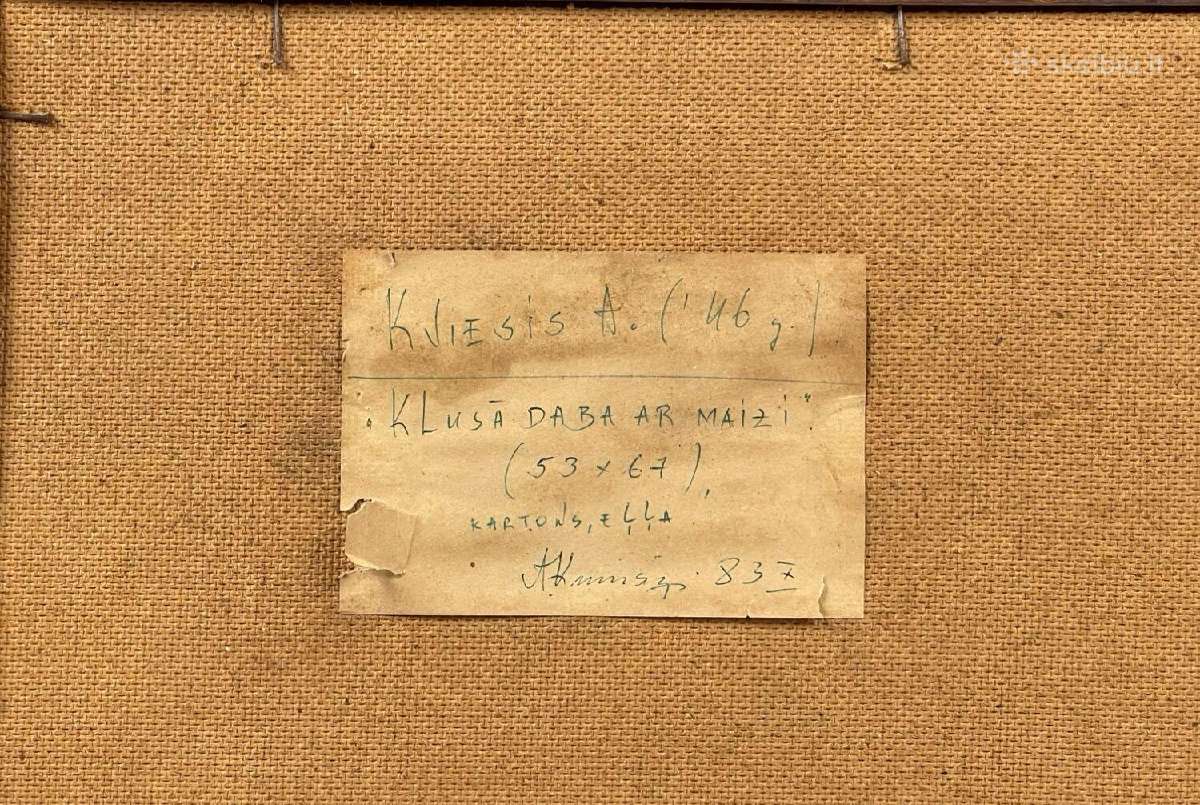 skelbiu.lt
KVIESIS A. ('46 g.)
"KLUSĀ DABA AR MAIZI".
(53 x 67),
KARTONS, EĻĻA
83 X